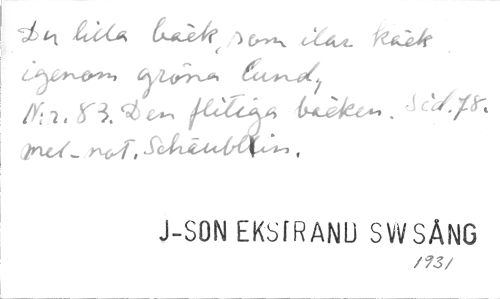 Du lilla bäck, som ilar käck
igenom gröna lund,
N:r. 83. Den flitiga bäcken. Sid. 78.
mel-not. Schäublin.
J-SON EKSTRAND SW SÅNG
1931